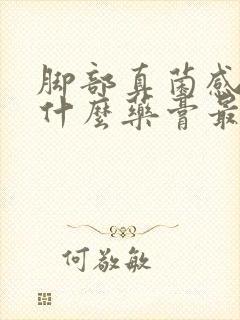 脚部真菌感
什麼藥膏最
何敬敏